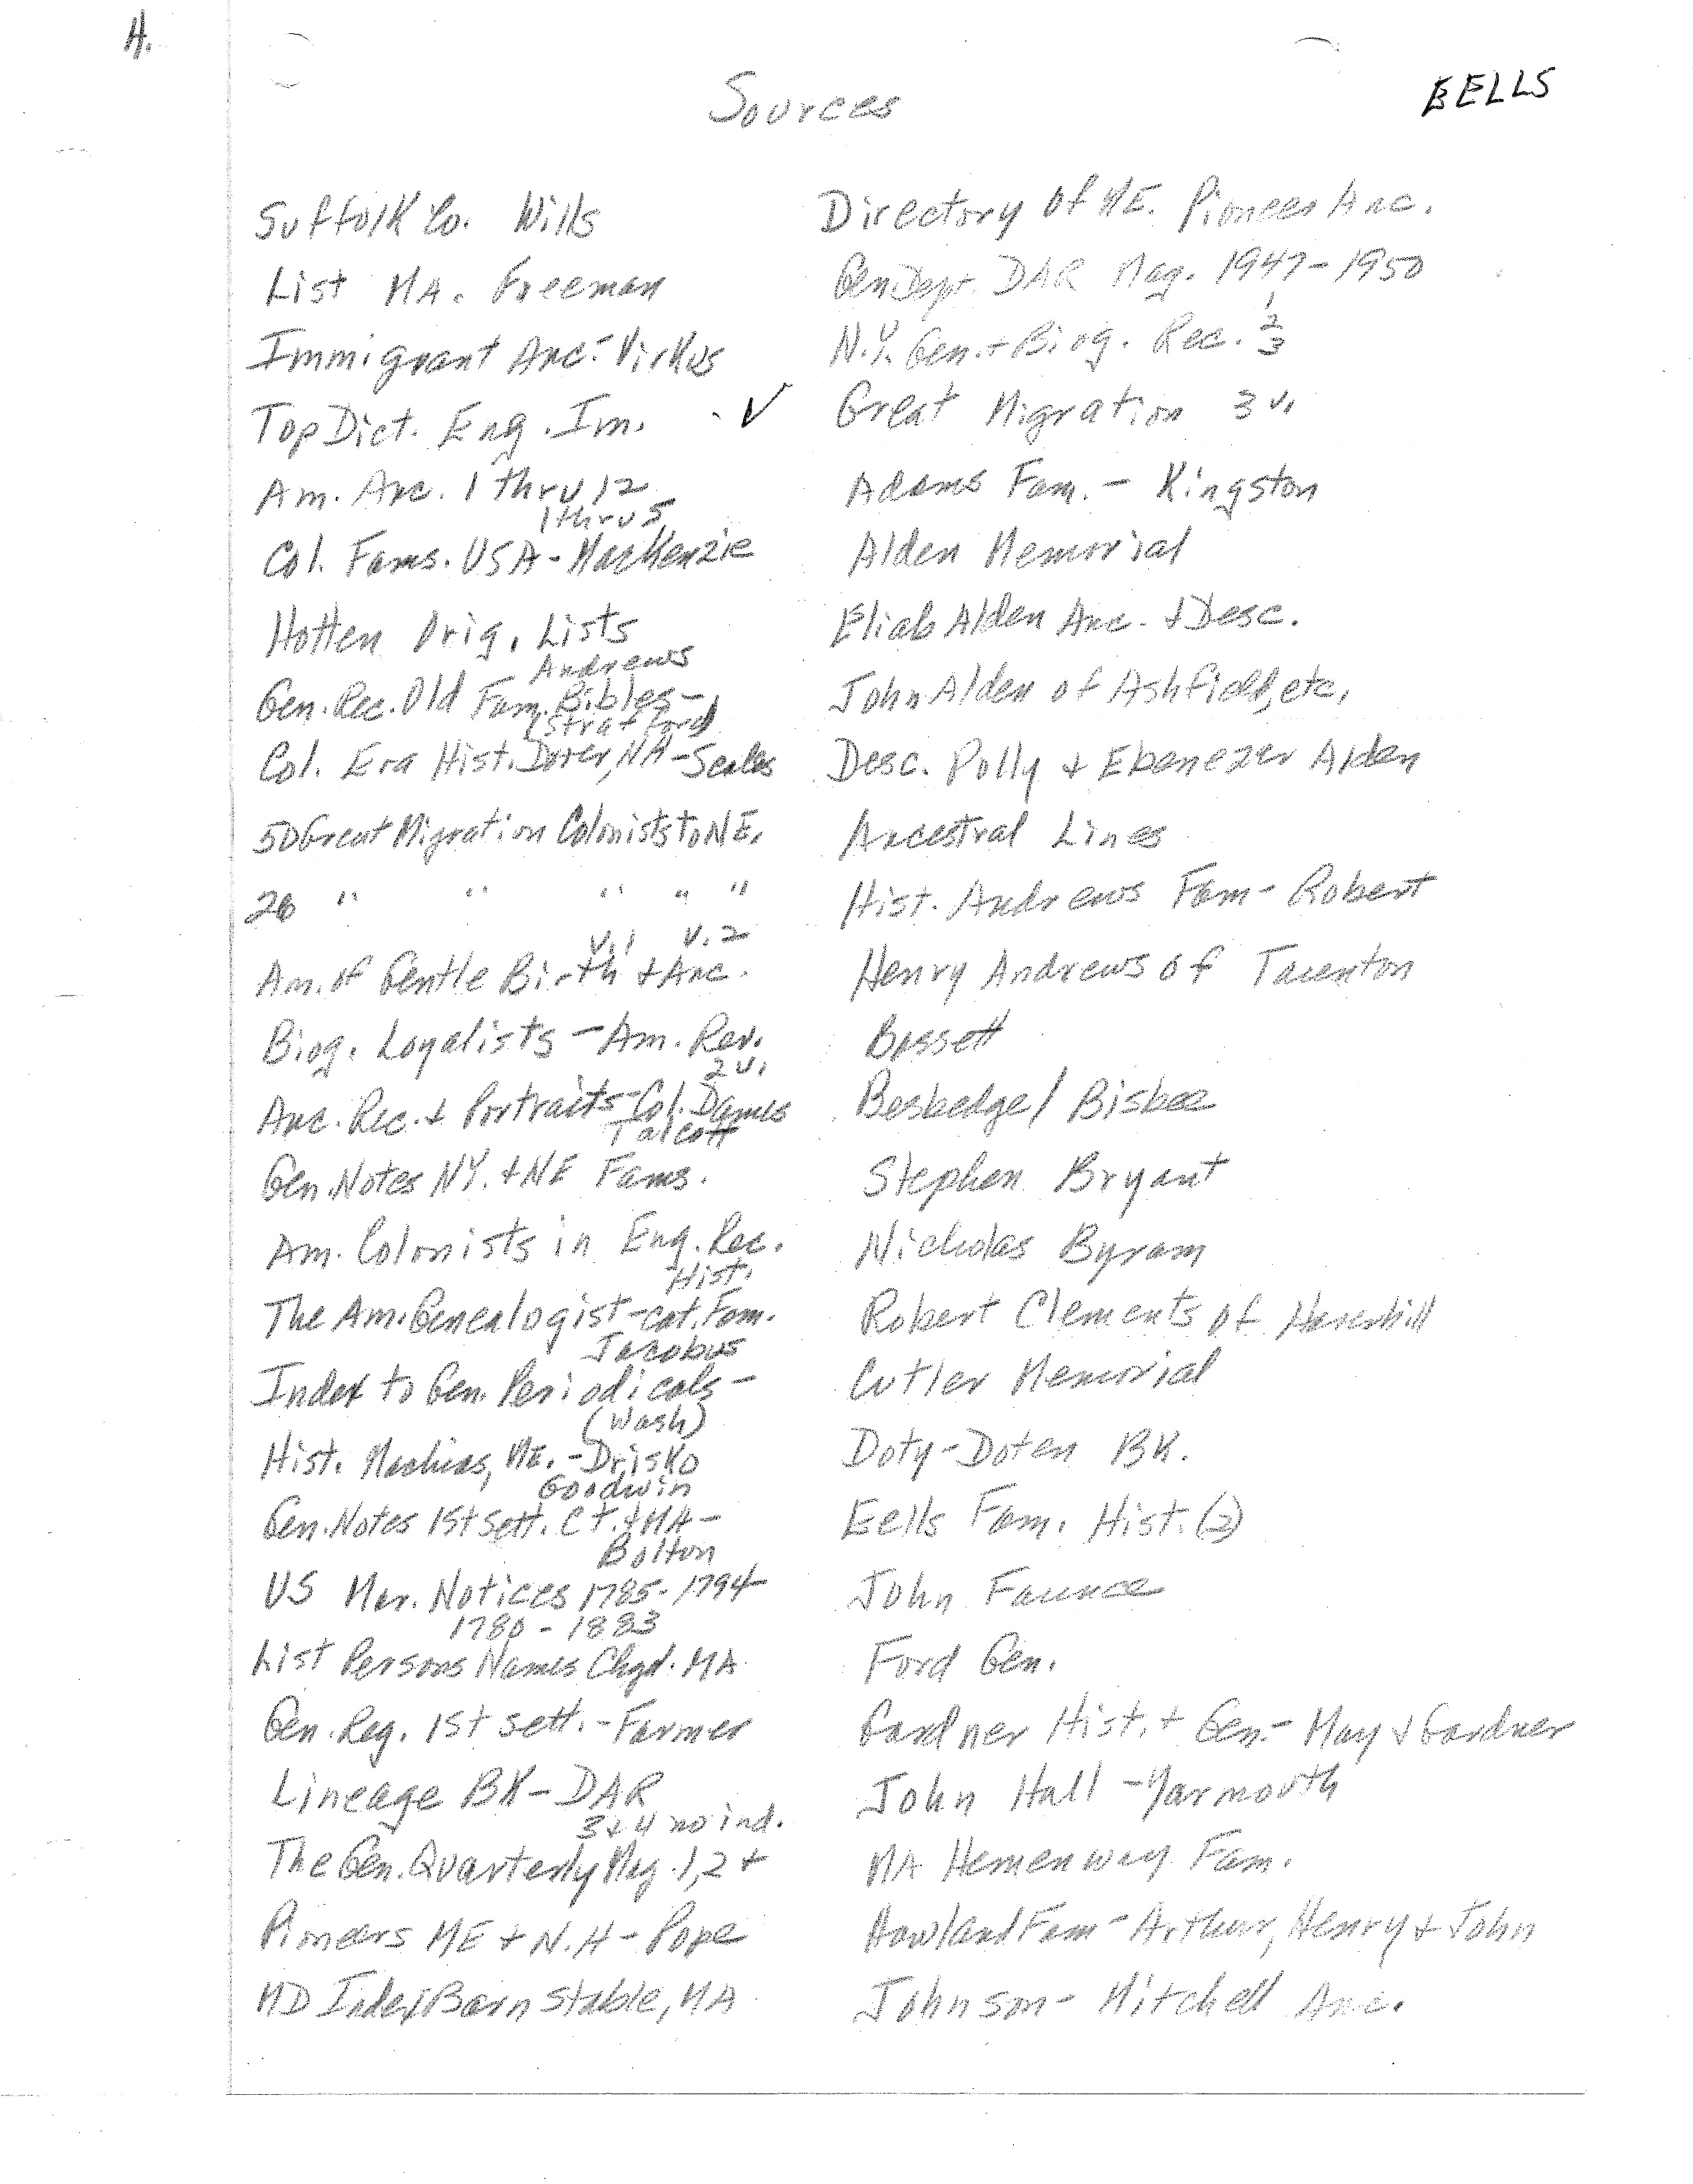 H.
Sources
EELLS
Suffolk Co. Wills
List MA. Freeman
Immigrant Anc.-Virkus
Top Dict. Eng. Im. ✓
Am. Anc. 1 thru 12
1 thru 5
Col. Fams. USA - MacKenzie
Hotten Orig. Lists
Andrews
Gen. Rec. Old Fam. Bibles -
(Strafford)
Col. Era Hist. Dover, NH - Scales
50 Great Migration Colonists to N.E.
26 " " " " "
V.1 V.2
Am. of Gentle Birth + Anc.
Biog. Loyalists - Am. Rev.
2 v.
Anc. Rec. + Portraits - Col. Dames
Talcott
Gen. Notes NY. + NE Fams.
Am. Colonists in Eng. Rec.
Hist.
The Am. Genealogist - cat. Fam.
Jacobus
Index to Gen. Periodicals -
(Wash)
Hist. Machias, ME. - Drisko
Goodwin
Gen. Notes 1st sett. Ct. + MA -
Bolton
US Mar. Notices 1785-1794
1780 - 1883
List Persons Names Chgd. MA
Gen. Reg. 1st sett. - Farmer
Lineage BK - DAR
3+4 no ind.
The Gen. Quarterly Mag. 1,2 +
Pioneers ME + N.H - Pope
MD Index Barnstable, MA
Directory of NE. Pioneer Anc.
Gen Dept. DAR Mag. 1947-1950
N.Y. Gen. + Biog. Rec. 1 2 3
Great Migration 3 v.
Adams Fam. - Kingston
Alden Memorial
Eliab Alden Anc. + Desc.
John Alden of Ashfield, etc.
Desc. Polly + Ebenezer Alden
Ancestral Lines
Hist. Andrews Fam - Robert
Henry Andrews of Taunton
Bassett
Besbedge / Bisbee
Stephen Bryant
Nicholas Byram
Robert Clements of Haverhill
Cutler Memorial
Doty-Doten BK.
Eells Fam. Hist. (2)
John Faunce
Ford Gen.
Gardner Hist. + Gen. - May + Gardner
John Hall - Yarmouth
MA Hemenway Fam.
Howland Fam - Arthur, Henry + John
Johnson - Mitchell Anc.